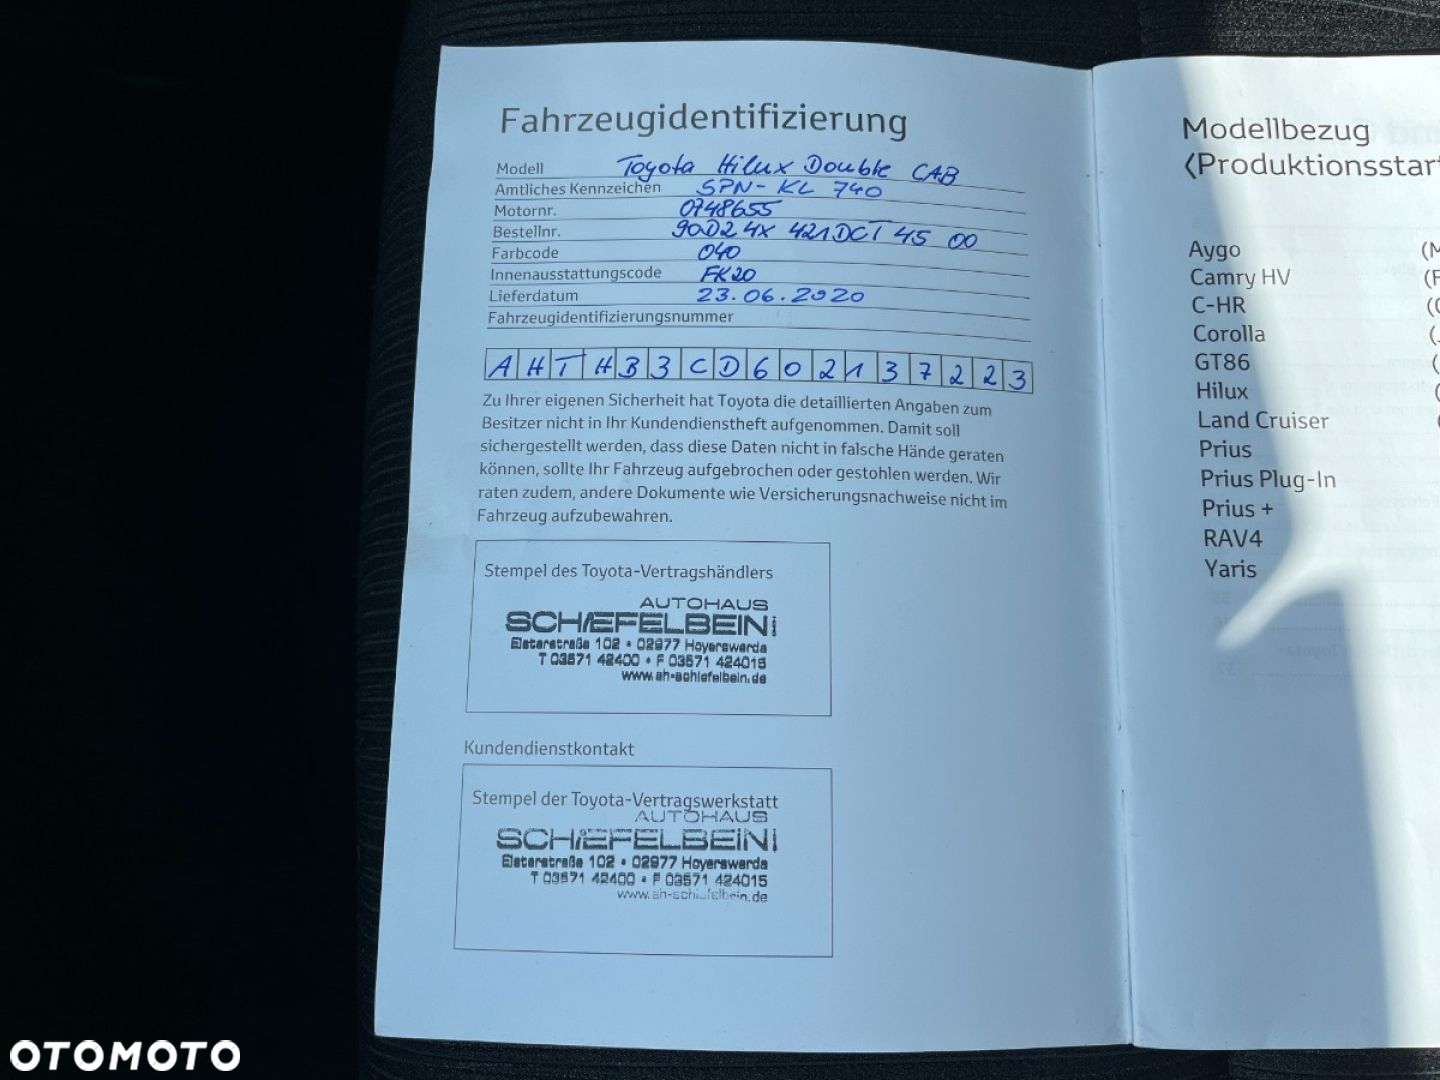 Fahrzeugidentifizierung
Modell Toyota Hilux Double CAB
Amtliches Kennzeichen SPN-KL 740
Motornr. 0748655
Bestellnr. 90D24X 421DCT 45 00
Farbcode 040
Innenausstattungscode FK20
Lieferdatum 23.06.2020
Fahrzeugidentifizierungsnummer
AHTHB3CD602137223
Zu Ihrer eigenen Sicherheit hat Toyota die detaillierten Angaben zum
Besitzer nicht in Ihr Kundendienstheft aufgenommen. Damit soll
sichergestellt werden, dass diese Daten nicht in falsche Hände geraten
können, sollte Ihr Fahrzeug aufgebrochen oder gestohlen werden. Wir
raten zudem, andere Dokumente wie Versicherungsnachweise nicht im
Fahrzeug aufzubewahren.
Stempel des Toyota-Vertragshändlers
AUTOHAUS
SCHIEFELBEIN
Elsterstraße 102 • 02977 Hoyerswerda
T 03571 42400 • F 03571 424015
www.ah-schiefelbein.de
Kundendienstkontakt
Stempel der Toyota-Vertragswerkstatt
AUTOHAUS
SCHIEFELBEIN
Elsterstraße 102 • 02977 Hoyerswerda
T 03571 42400 • F 03571 424015
www.ah-schiefelbein.de
Modellbezug
(Produktionsstart
Aygo
Camry HV
C-HR
Corolla
GT86
Hilux
Land Cruiser
Prius
Prius Plug-In
Prius +
RAV4
Yaris
OTOMOTO